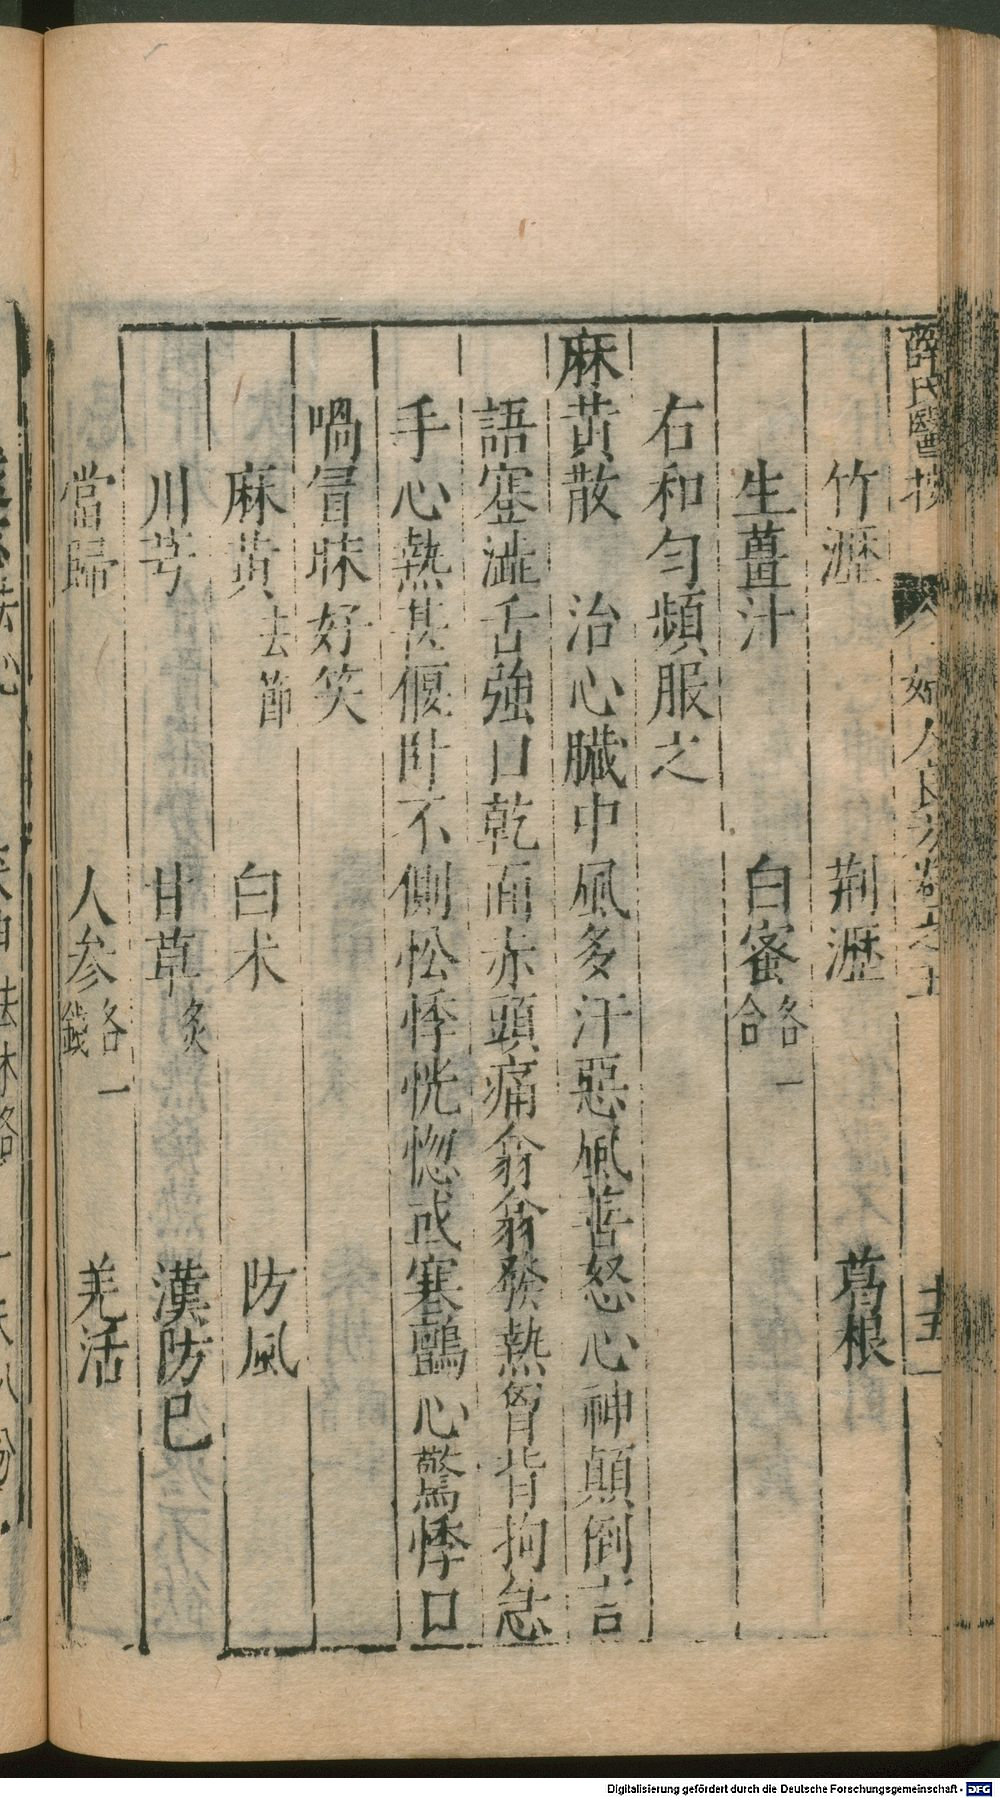 薛氏醫按 婦人良方卷之 十五
竹瀝 荆瀝 葛根
生薑汁 白蜜各一合
右和匀頻服之
麻黄散 治心臟中風多汗惡風善怒心神顛倒言
語蹇澁舌強口乾面赤頭痛翕翕發熱胷背拘急
手心熱甚偃卧不側忪悸恍惚或寒戰心驚悸口
喎冒昧好笑
麻黄去節 白术 防風
川芎 甘草炙 漢防巳
當歸 人參各一錢 羌活
Digitalisierung gefördert durch die Deutsche Forschungsgemeinschaft - DFG